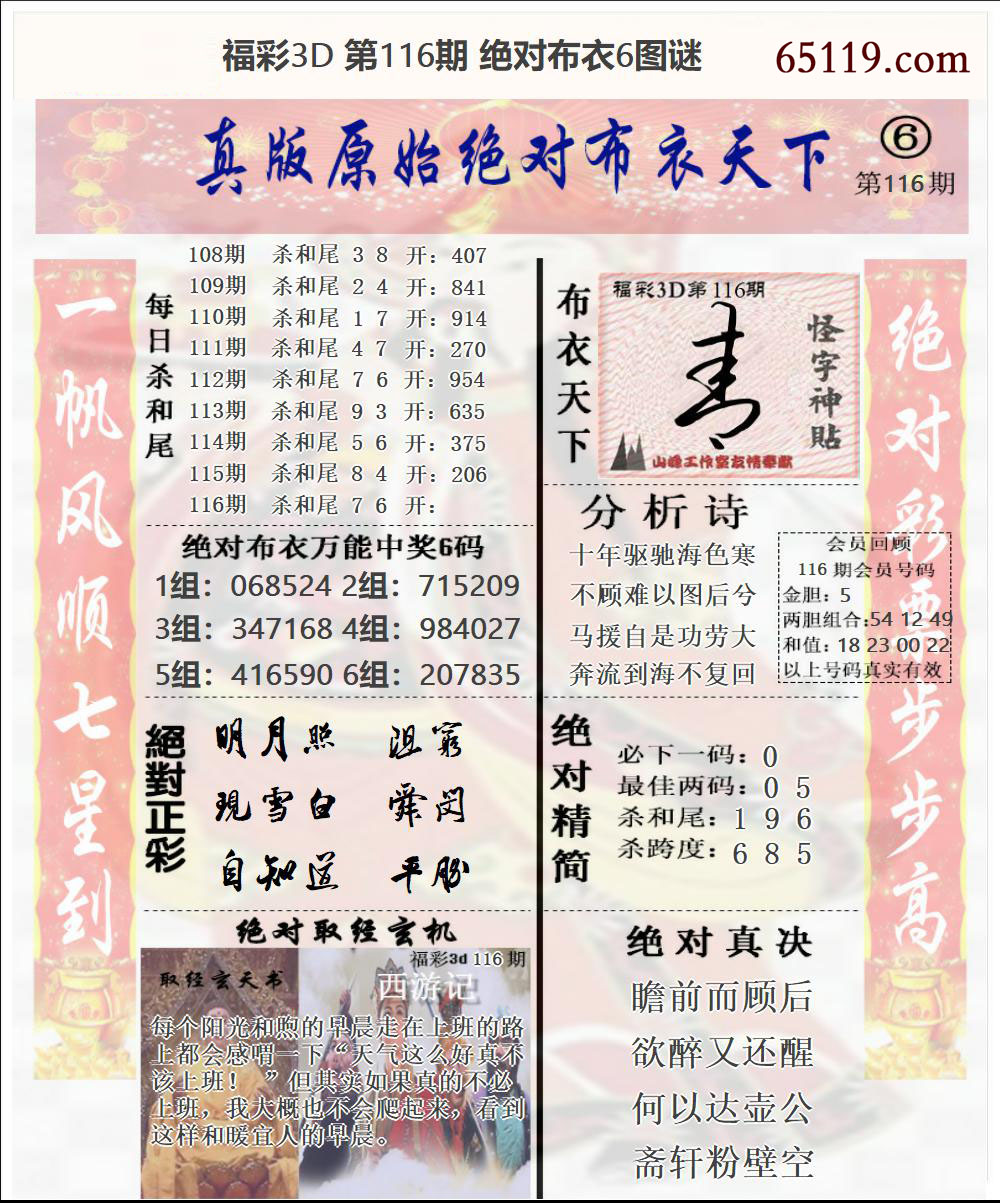 福彩3D 第116期 绝对布衣6图谜
65119.com
真版原始绝对布衣天下
⑥
第116期
一帆风顺七星到
每日杀和尾
108期 杀和尾 3 8 开：407
109期 杀和尾 2 4 开：841
110期 杀和尾 1 7 开：914
111期 杀和尾 4 7 开：270
112期 杀和尾 7 6 开：954
113期 杀和尾 9 3 开：635
114期 杀和尾 5 6 开：375
115期 杀和尾 8 4 开：206
116期 杀和尾 7 6 开：
绝对布衣万能中奖6码
1组：068524 2组：715209
3组：347168 4组：984027
5组：416590 6组：207835
絕對正彩
明月照 沮窮
現雪白 舜閔
自知道 平胁
绝对取经玄机
福彩3d 116期
取经玄天书
西游记
每个阳光和煦的早晨走在上班的路
上都会感喟一下“天气这么好真不
该上班！ ”但其实如果真的不必
上班，我大概也不会爬起来，看到
这样和暖宜人的早晨。
布衣天下
福彩3D第116期
怪字神貼
山峰工作室友情奉献
分析诗
十年驱驰海色寒
不顾难以图后兮
马援自是功劳大
奔流到海不复回
会员回顾
116 期会员号码
金胆：5
两胆组合:54 12 49
和值：18 23 00 22
以上号码真实有效
绝对精简
必下一码：0
最佳两码：0 5
杀和尾：1 9 6
杀跨度：6 8 5
绝对真决
瞻前而顾后
欲醉又还醒
何以达壶公
斋轩粉壁空
绝对彩票步步高